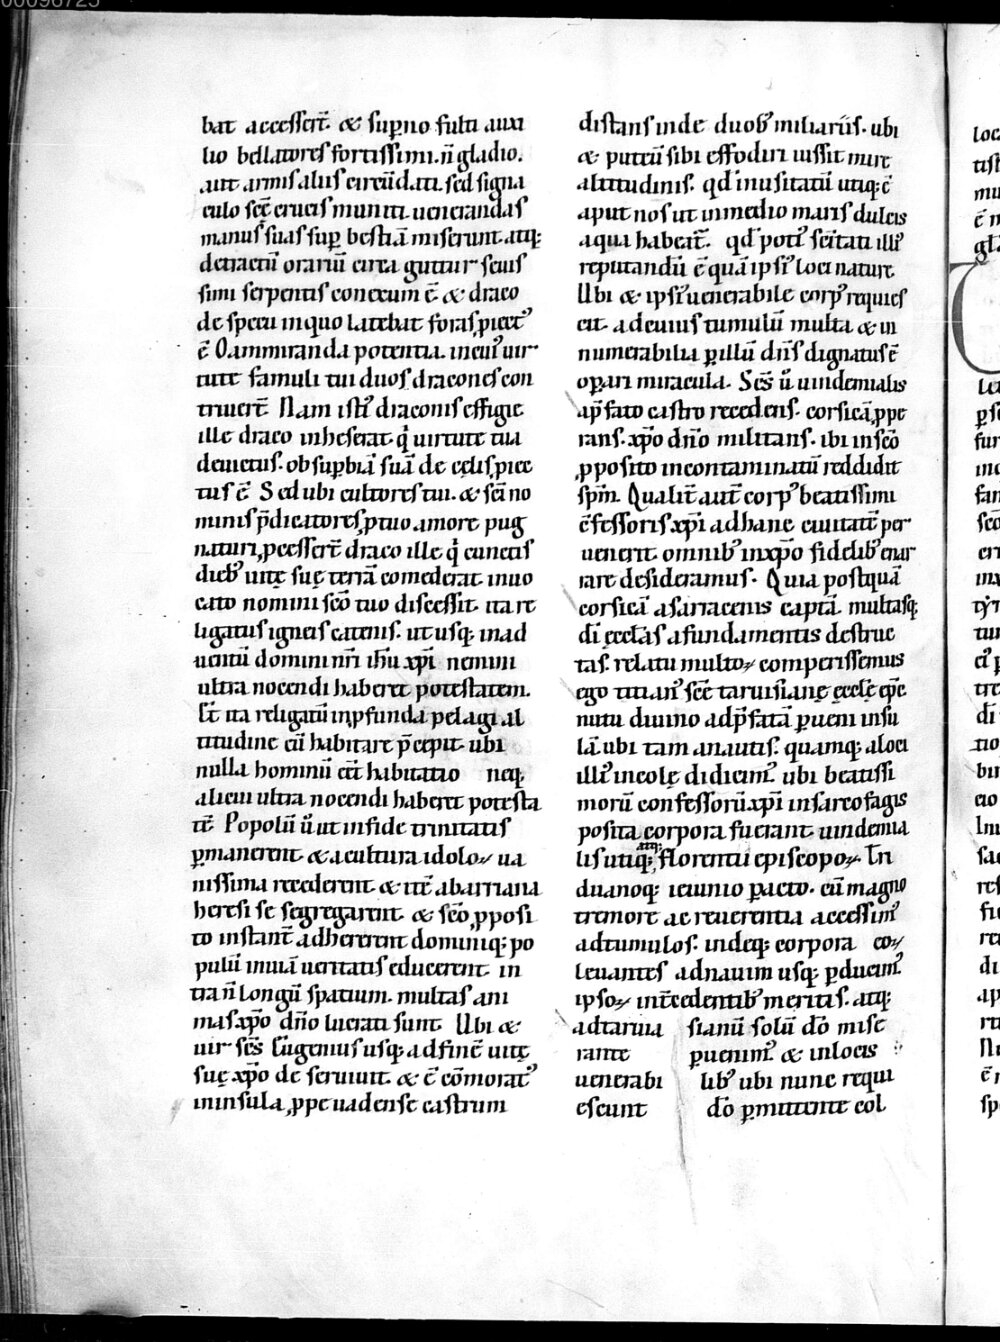 bat accesser̄t. & sup̱no fulti auxi
lio bellatores fortissimi. n̄ gladio.
aut armis aliis circū dati. sed signa
culo sc̄ę crucis muniti. uenerandas
manus suas sup̱ bestiā miserunt. atq;
detractū orariū circa guttur seuis
simi serpentis conexum ē. & draco
de specu in quo latebat foras ꝓiect᾽
ē. O ammiranda potentia. in cui᾽ uir
tute famuli tui duos dracones con
triuer̄t. Nam isti᾽ draconis effigie
ille draco inheserat. q̇ uirtute tua
deuictus. ob sup̱biā suā de cęlis ꝓiec
tus ē. Sed ubi cultores tui. & sc̄i no
minis p̄dicatores ꝓ tuo amore pug
naturi ꝓcesser̄t. draco ille q̇ cunctis
dieb᾽ uitę suę terrā comederat. inuo
cato nomini sc̄o tuo discessit. ita re
ligatus igneis catenis. ut usq; in ad
uentū domini nr̄i ih̄u xp̄i nemini
ultra nocendi haberet potestatem.
Et ita religatū in ꝓfunda pelagi al
titudine eū habitare p̄cepit. ubi
nulla hominū eēt habitatio neq;
alicui ultra nocendi haberet potesta
tē. Populū ū ut in fide trinitatis
p̱manerent. & a cultura idoloꝝ ua
nissima recederent. & itē ab arriana
heresi se segregarent. & sc̄o ꝓposi
to instant̄ adhererent. dominiq; po
pulū in uiā ueritatis educerent. in
tra n̄ longū spatium. multas ani
mas xp̄o dn̄o lucrati sunt. Ubi &
uir sc̄s Eugenius usq; ad finē uitę
suę xp̄o deseruiuit. & ē cōmorat᾽
in insula ꝓpe uadense castrum
distans inde duob᾽ miliariis. ubi
& puteū sibi effodiri iussit mirę
altitudinis. qd̄ inusitatū utiq; ē
aput nos ut in medio maris dulcis
aqua habeat̄. qd̄ poti᾽ sc̄itati illi᾽
reputandū ē quā ipsi᾽ loci naturę.
Ubi & ipsi᾽ uenerabile corp᾽ requies
cit. ad cuius tumulū multa & in
numerabilia p̱ illū dn̄s dignatus ē
op̱ari miracula. Sc̄s ū uindemialis
a p̄fato castro recedens. corsicā ꝓpe
rans. xp̄o dn̄o militans. ibi in sc̄o
ꝓposito incontaminatū reddidit
sp̄m. Qualit̄ aut̄ corp᾽ beatissimi
c̄fessoris xp̄i ad hanc ciuitatē per
uenerit. omnib᾽ in xp̄o fidelib᾽ enar
rare desideramus. Quia postquā
corsicā a saracenis captā. multasq;
dī ęccl̄as a fundamentis destruc
tas. relatu multoꝝ comperissemus
ego titian᾽ sc̄ę taruisianę ęccl̄ę ep̄c
nutu diuino ad p̄fatā p̱ueni insu
lā. ubi tam a nautis. quamq; a loci
illi᾽ incolę didicim᾽. ubi beatissi
morū confessorū xp̄i in sarcofagis
posita corpora fuerant. uindemia
lis utiq; atq; florentii episcopoꝝ. Tri
duanoq; ieiunio p̱acto. cū magno
tremore ac reuerentia accessim᾽
ad tumulos. indeq; corpora eoꝝ
leuantes ad nauim usq; p̱duxim᾽.
ipsoꝝ int̄cedentib᾽ meritis. atq;
ad taruisianū solū dō mise
rante p̱uenim᾽. & in locis
uenerabilib᾽ ubi nunc requi
escunt dō p̱mittente col